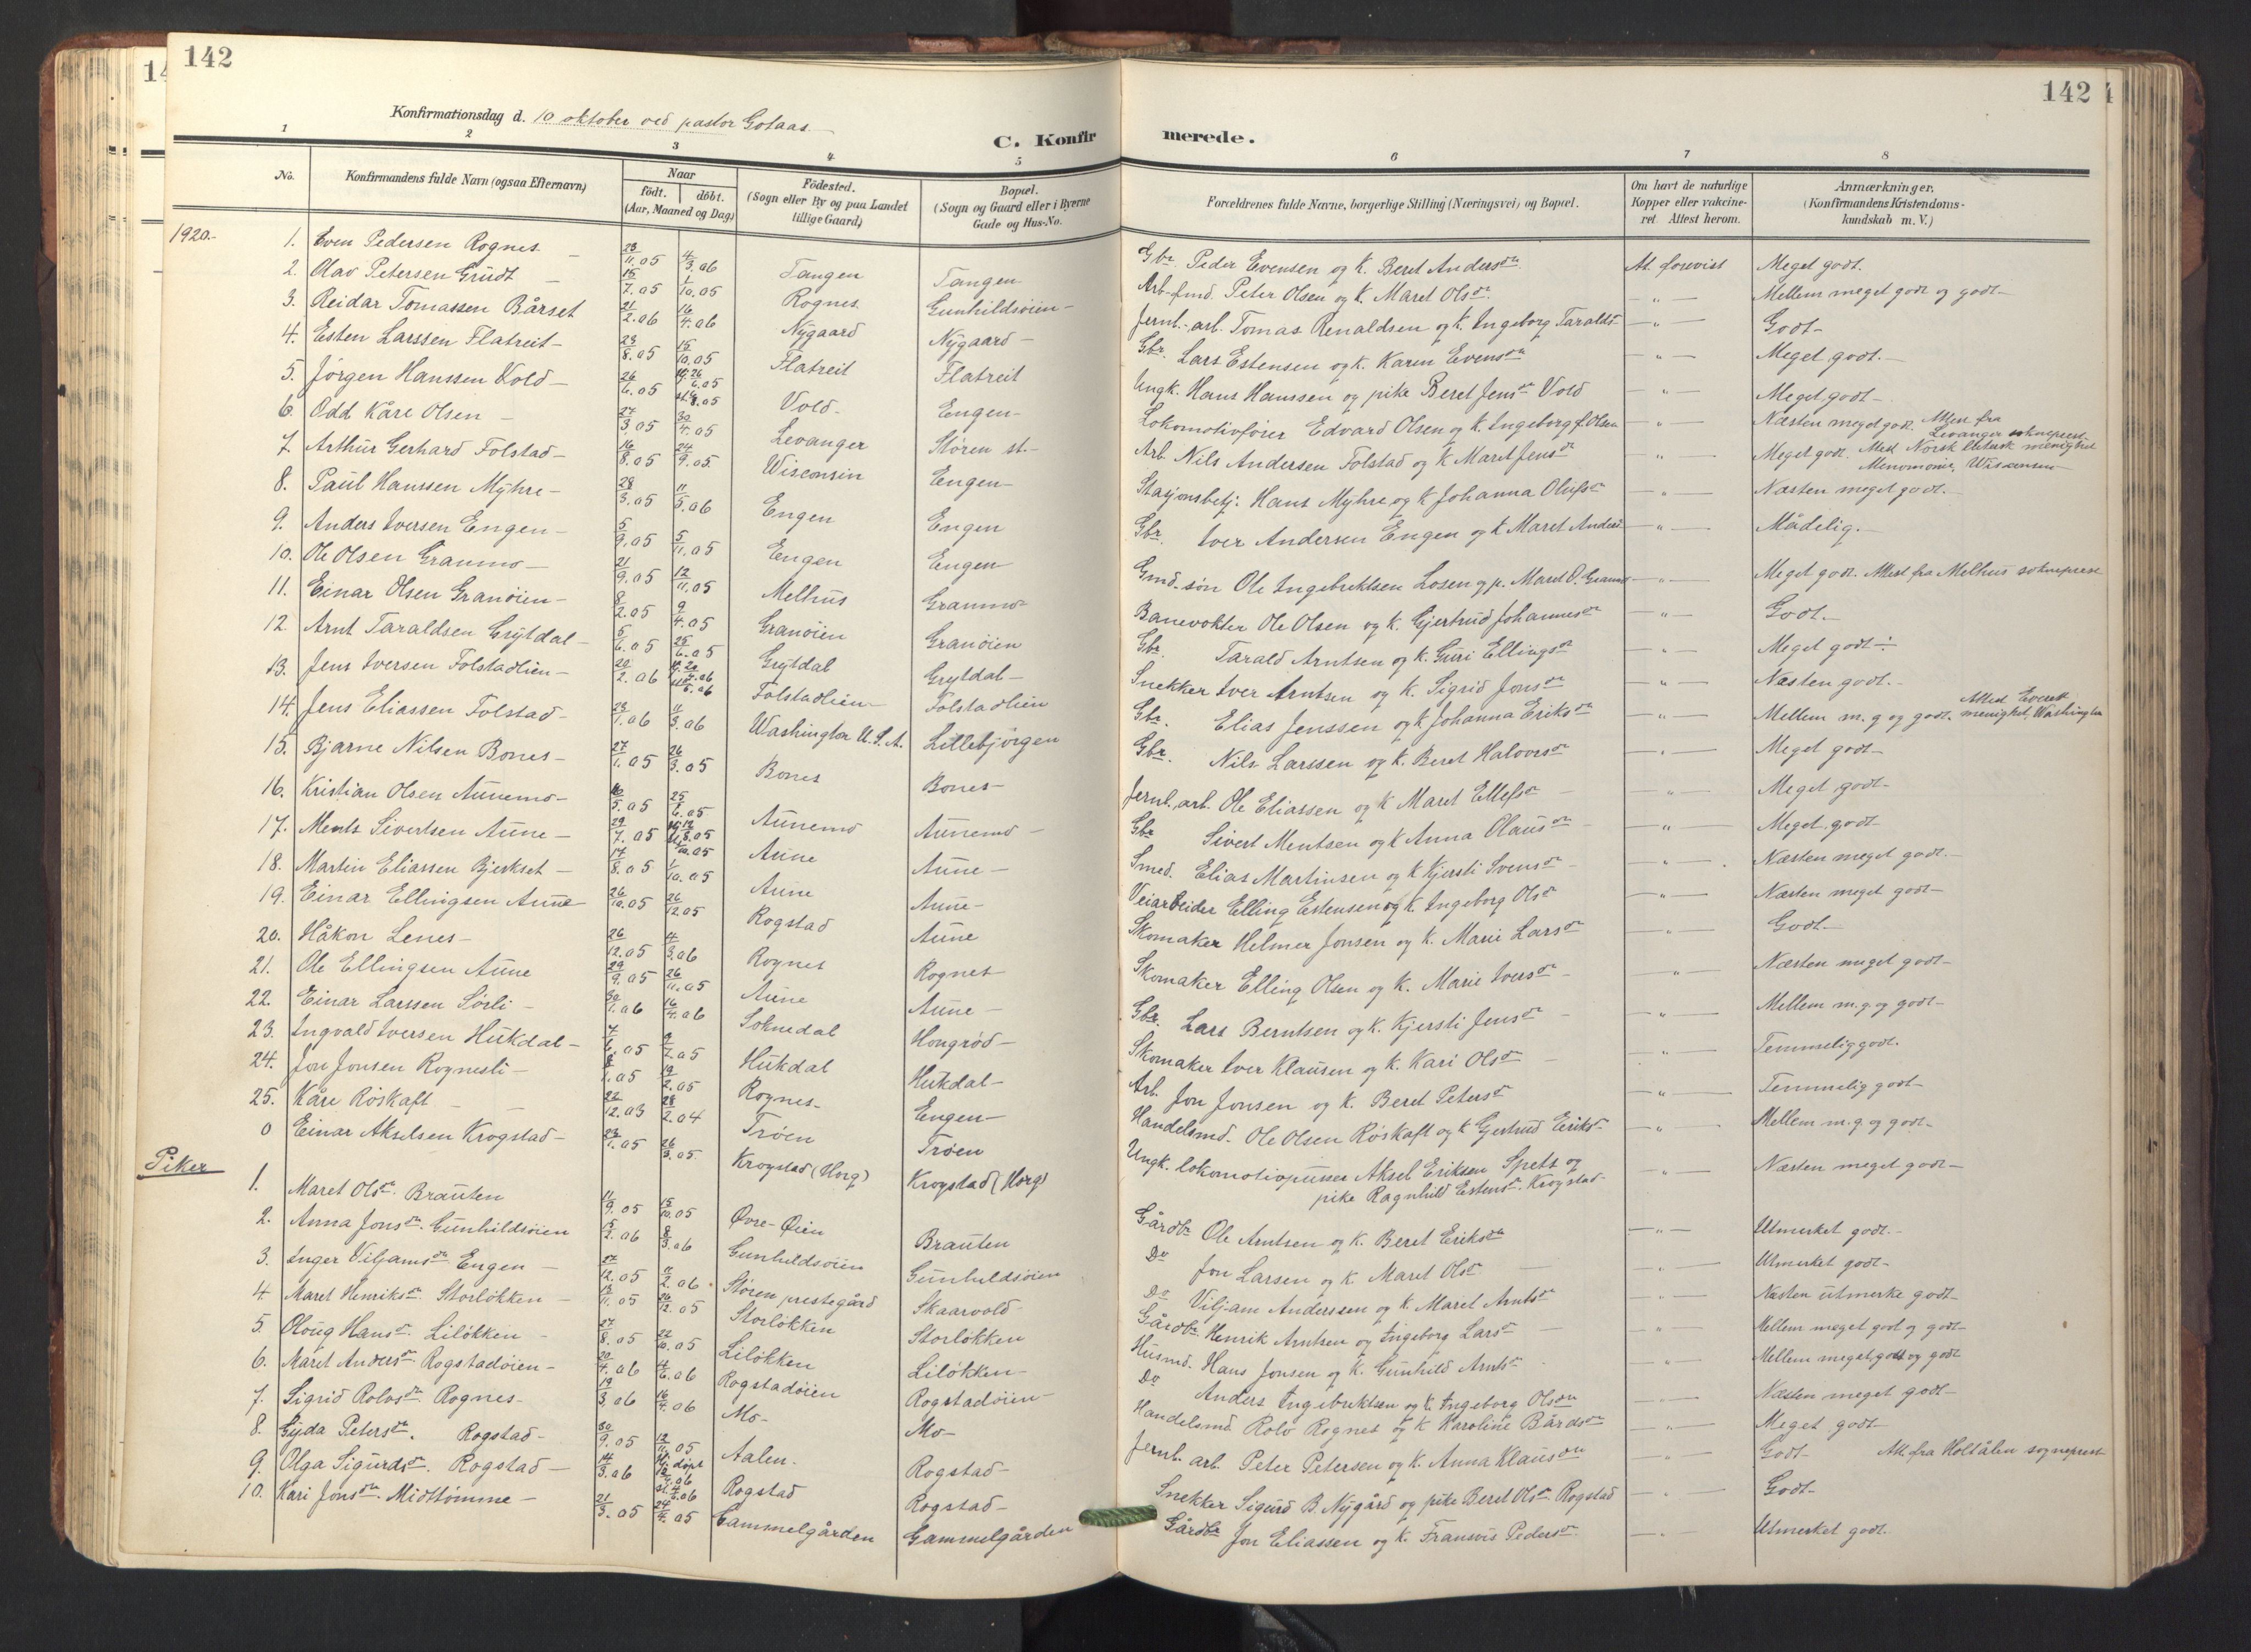 142
142
Konfirmationsdag d. 10 oktober ved pastor Gotaas
C. Konfirmerede.
1 2 3 4 5 6 7 8
No. Konfirmandens fulde Navn (ogsaa Efternavn) Naar födt. döbt. (Aar, Maaned og Dag) Födested. (Sogn eller By og paa Landet tillige Gaard) Bopæl. (Sogn og Gaard eller i Byerne Gade og Hus-No. Forældrenes fulde Navne, borgerlige Stilling (Næringsvei) og Bopæl. Om havt de naturlige Kopper eller vakcineret Attest herom. Anmærkninger. (Konfirmandens Kristendomskundskab m. V.)
1920.
1. Even Pedersen Rognes 23/11.05 4/3.06 Tangen Tangen Gbr. Peder Evensen og k. Beret Andersdr. At. forevist Meget godt.
2. Olav Petersen Grudt 15/7.05 1/10.05 Rognes Gunhildsöien Arb. Peter Olsen og k. Maret Olsdr. — " — Mellem meget godt og godt
3. Reidar Tomassen Bårset 21/2.06 16/4.06 Nygaard Nygaard Jernb.-arb. Tomas Renaldsen og k. Ingeborg Taralds — " — Godt
4. Esten Larssen Flatreit 23/8.05 15/10.05 Flatreit Flatreit Gbr. Lars Estensen og k. Karen Evensdr — " — Meget godt.
5. Jörgen Hanssen Vold 26/6.05 Vold Engen Ungk. Hans Hanssen og pike Beret Jensdr Vold — " — Meget godt
6. Odd Kåre Olsen 27/3.05 30/4.05 Levanger Støren st. Lokomotivfører Edvard Olsen og k. Ingeborg f. Olsen — " — Næsten meget godt. Attest fra Levanger sokneprest
7. Arthur Gerhard Folstad 16/8.05 24/9.05 Wisconsin Engen Arb. Nils Andersen Folstad og k Maret Jensdr — " — Meget godt. Attest Norsk lutersk menighet Menomonie, Wisconsin
8. Paul Hanssen Myhre 28/3.05 11/5.06 Engen Engen Stasjonsbetj. Hans Myhre og k Johanna Olufsdr — " — Næsten meget godt.
9. Anders Iversen Engen 5/9.05 5/11.05 Engen Engen Gbr. Iver Andersen Engen og k Maret Anders — " — Mådelig.
10. Ole Olsen Granmo 21/9.05 12/11.05 Melhus Granmo Gmd. søn Ole Ingebriktsen Losen og p. Maret O. Granmo — " — Meget godt. Attest fra Melhus sokneprest
11. Einar Olsen Granöien 8/2.05 9/4.05 Granöien Granöien Banevokter Ole Olsen og k. Gjertrud Johannesdr — " — Godt.
12. Arnt Taraldsen Grytdal 5/6.05 25/6.05 Grytdal Grytdal Gbr. Tarald Arntsen og k. Guri Ellingsdr — " — Meget godt
13. Jens Iversen Folstadlien 20/2.06 Folstadlien Folstadlien Snekker Iver Arntsen og k. Sigrid Jonsdr — " — Næsten godt.
14. Jens Eliassen Folstad 23/1.06 11/3.06 Washington U.S.A. Lillebjörgen Gbr. Elias Jenssen og k Johanna Eriksdr — " — Mellem m. g og godt. Attest Everett menighet, Washington
15. Bjarne Nilsen Bones 27/1.05 26/3.05 Bones Bones Gbr. Nils Larssen og k. Beret Halvorsdr — " — Meget godt
16. Kristian Olsen Aunemo 16/5.05 25/6.05 Aunemo Aunemo Jernb. arb. Ole Eliassen og k Maret Ellefsdr — " — Meget godt
17. Ments Sivertsen Aune 29/7.05 Aune Aune Gbr Sivert Mentsen og k Anna Olausdr — " — Meget godt
18. Martin Eliassen Bjerkset 17/8.05 1/10.05 Aune Aune Smed. Elias Martinsen og k Kjersti Svensdr — " — Næsten meget godt.
19. Einar Ellingsen Aune 26/10.05 26/12.05 Rogstad Aune Veiarbeider Elling Estensen og k. Ingeborg Olsdr — " — Næsten meget godt
20. Håkon Lenes 26/12.05 4/3.06 Rognes Rognes Skomaker Helmer Jonsen og k. Marie Larsdr — " — Godt
21. Ole Ellingsen Aune 29/9.05 26/11.05 Aune Aune Skomaker Elling Olsen og k. Marie Iversdr — " — Næsten meget godt
22. Einar Larssen Sörli 30/1.06 16/4.06 Soknedal Hongröd Gbr. Lars Berntsen og k. Kjersti Jensdr — " — Mellem m.g og godt
23. Ingvald Iversen Hukdal 7/6.05 9/7.05 Hukdal Hukdal Skomaker Iver Klausen og k. Kari Olsdr — " — Temmelig godt.
24. Jon Jonsen Rognesli 8/1.05 19/2.05 Rognes Engen Arb. Jon Jonsen og k. Beret Petersdr — " — Temmelig godt
25. Kåre Röskaft 22/12.03 28/2.04 Tröen Tröen Handelsmd. Ole Olsen Röskaft og k Gjertrud Eriks — " — Mellem m. g og godt
0 Einar Akselsen Krogstad 23/1.05 26/3.05 Krogstad (Horg) Krogstad (Horg) Ungk. lokomotivpusser Aksel Eriksen Spets og pike Ragnhild Estensdr. Krogstad — " — Næsten meget godt
Piker
1. Maret Olsdr. Brauten 11/9.05 15/10.05 Øvre-Øien Brauten Gårdbr Ole Arntsen og k. Beret Eriksdr — " — Utmerket godt.
2. Anna Jonsdr. Gunhildsöien 15/2.06 8/3.06 Gunhildsöien Gunhildsöien Do Jon Larsen og k. Maret Olsdr — " — Utmerket godt
3. Inger Viljamsdr Engen 27/12.05 11/2.06 Stören prestegård Skaarvold Do Viljam Anderssen og k. Maret Arntsdr — " — Næsten utmerke godt
4 Maret Henriksdr. Storlökken 12/11.05 26/12.05 Storlökken Storlökken Gårdbr. Henrik Arntsen og Ingeborg Larsdr — " — Mellem meget godt og godt
5. Oloug Hansdr. Lilökken 27/8.05 22/10.05 Lilökken Lilökken Husmd. Hans Jonsen og k. Gunhild Arntsdr — " — Mellem meget godt og godt
6. Maret Andersdr. Rogstadöien 20/4.06 4/6.06 Rogstadöien Rogstadöien Do Anders Ingebriktsen og k. Ingeborg Olsdr — " — Næsten meget godt
7. Sigrid Rolvsdr. Rognes 19/3.06 16/4.06 Mo Mo Handelsmd Rolv Rognes og k Karoline Bårdsdr — " — Meget godt
8. Gyda Petersdr. Rogstad 30/9.05 12/11.05 Aalen. Rogstad Jernb. arb. Peter Petersen og k. Anna Klausdr — " — Godt Att. fra Holtålen sogneprest
9. Olga Sigurdsdr. Rogstad 14/3.06 Hj. döpt Rogstad Rogstad Snekker Sigurd B. Nygård og pike Beret Olsdr. Rogstad — " — Godt
10. Kari Jonsdr. Midttömme 21/3.05 24/4.05 Gammelgården Gammelgården Gårdbr Jon Eliassen og k. Fransvis Pedersdr — " — Utmerket godt